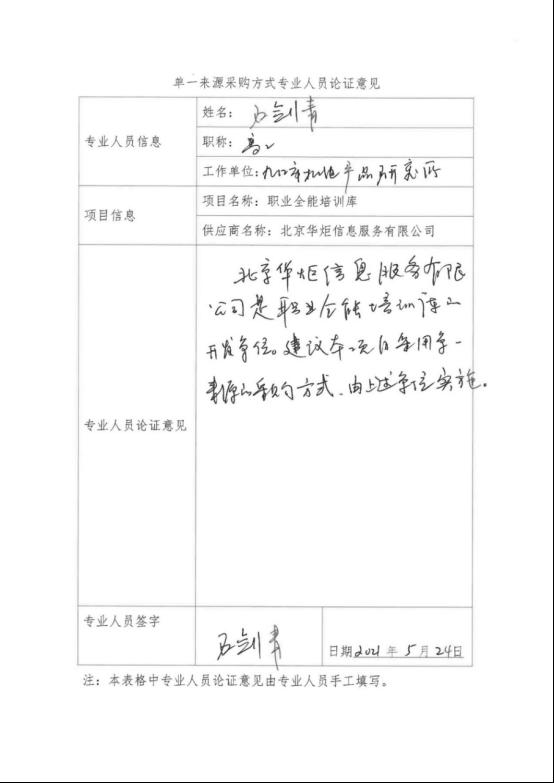 单一来源采购方式专业人员论证意见
专业人员信息
姓名：石剑青
职称：高工
工作单位：九江市
项目信息
项目名称：职业全能培训库
供应商名称：北京华炬信息服务有限公司
专业人员论证意见
北京华炬信息服务有限
公司是职业全能培训库的
开发单位。建议本项目采用单一
来源的采购方式、由上述单位实施。
专业人员签字
石剑青
日期2021年5月24日
注：本表格中专业人员论证意见由专业人员手工填写。